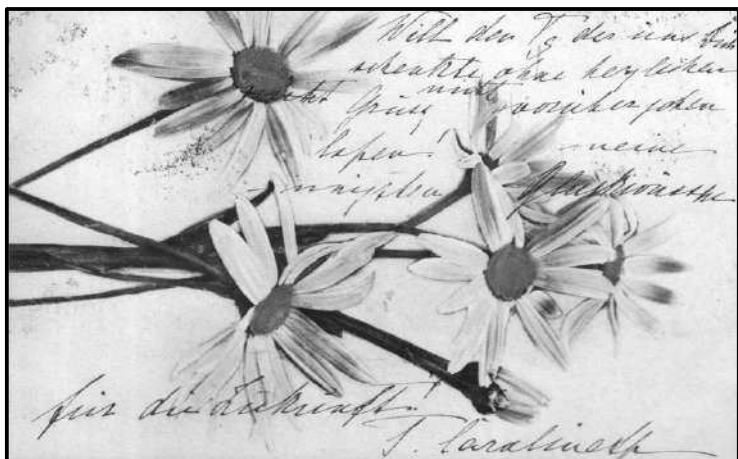 Will den Tg der uns Dich
schenkte ohne herzlichen
Gruß nicht vorübergehen
laßen! meine
innigsten Glückwünsche
für die Zukunft!